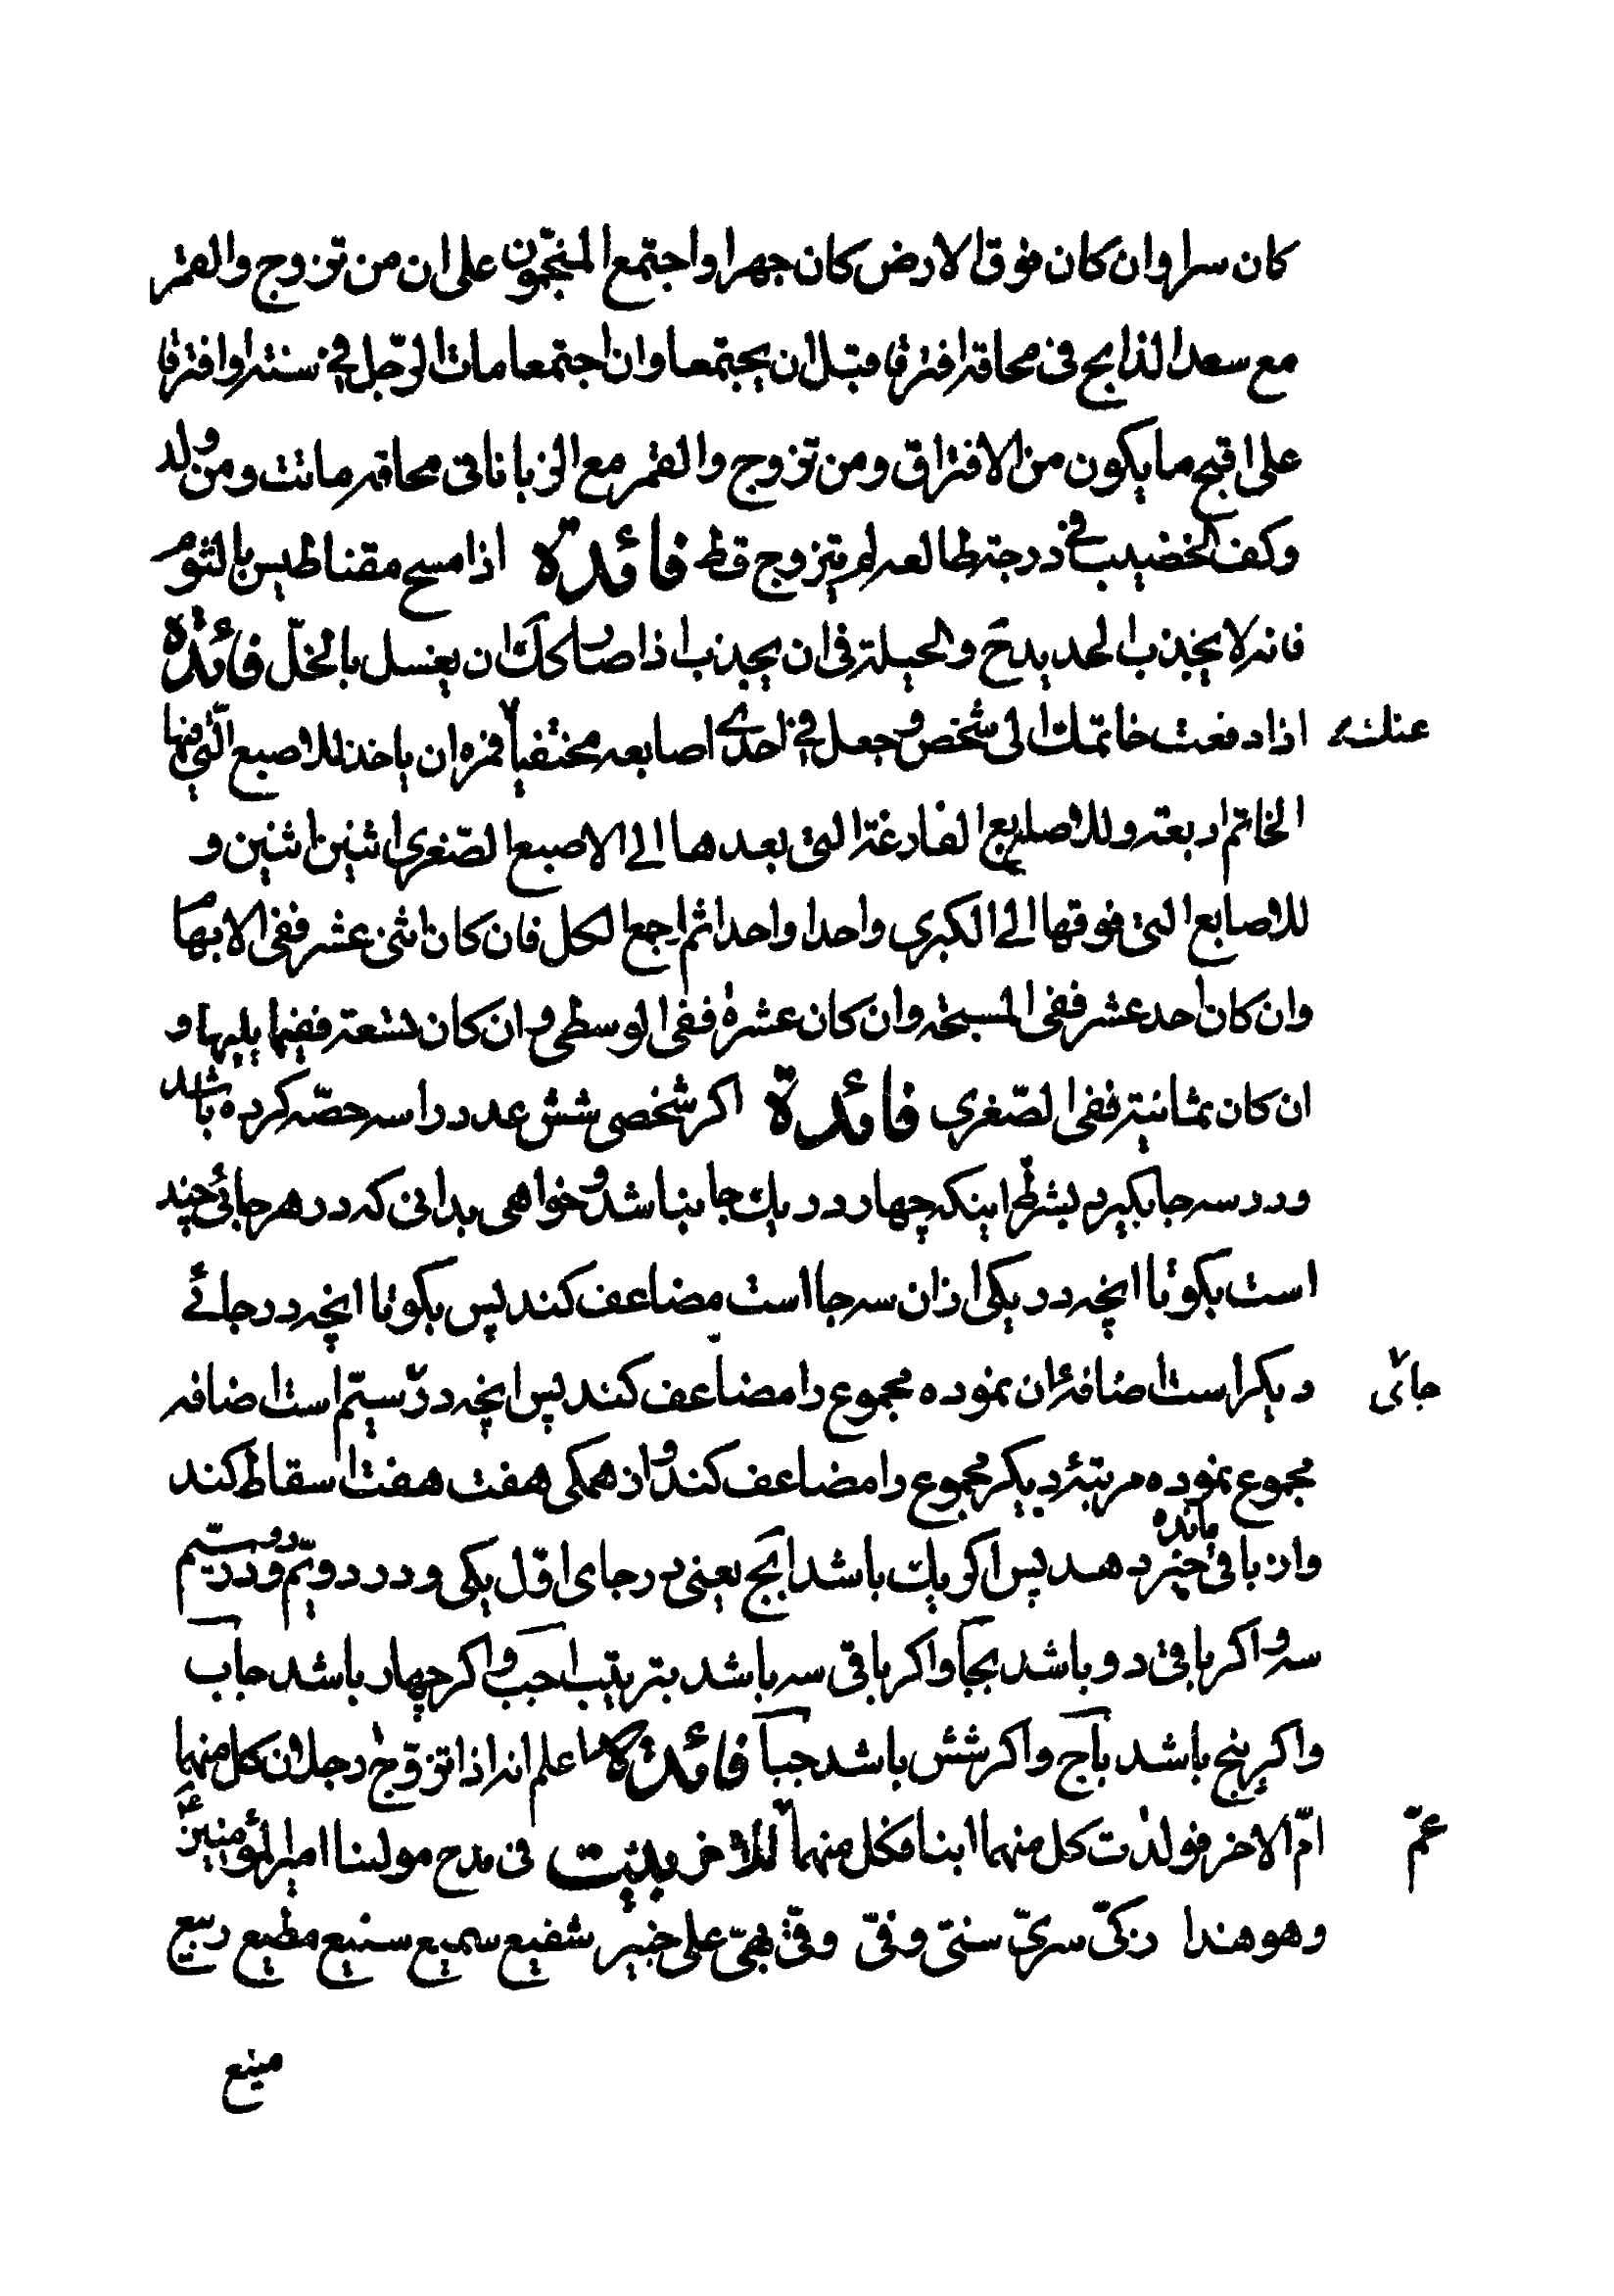 كان سرا وان كان فوق الارض كان جهرا واجتمع المنجّمون على ان من تزوج والقمر
مع سعد الذابح فى محاقه افترقا قبل ان يجتمعا وان اجتمعا مات الرّجل فى سنته او افترقا
على اقبح ما يكون من الافتراق ومن تزوج والقمر مع الزبانا فى محاقه ماتت ومن ولد
وكف الخضيب فى درجة طالعه لم يتزوج قط فائدة اذا مسح مقناطيس بالثوم
فانه لا يجذب الحديد ح والحيلة فى ان يجذب اذا صار كك ان يغسل بالخلّ فائدة
اذا دفعت خاتمك الى شخص وجعل فى احدى اصابعه مختفيا فمره ان ياخذ للاصبع الّتى فيها
عنك
الخاتم اربعة وللاصابع الفارغة التى بعدها الى الاصبع الصّغرى اثنين اثنين و
للاصابع التى فوقها الى الكبرى واحدا واحدا ثم اجمع الكل فان كان اثنى عشر ففى الابهام
وان كان احد عشر ففى المسبحة وان كان عشرة ففى الوسطى وان كان تسعة ففيما يليها و
ان كان ثمانية ففى الصّغرى فائدة اكر شخصى شش عدد را سه حصّه كرده باشد
ودر سه جا بكيرد بشرط اينكه چهار در يك جا نباشد وخواهى بدانى كه در هر جائى چند
است بكو تا انچه در يكى از ان سه جا است مضاعف كند پس بكو تا انچه در جائے
ديكر است اضافهٔ ان نموده مجموع را مضاعف كند پس انچه در سيّم است اضافه
جائى
مجموع نموده مرتبهٔ ديكر مجموع را مضاعف كند واز همكى هفت هفت اسقاط كند
واز باقى مانده خبر دهد پس اكر يك باشد ابج يعنى در جاى اول يكى ودر دويّم دو ودر سيّم
سه واكر باقى دو باشد بجا واكر باقى سه باشد بترتيب احب واكر چهار باشد جاب
واكر پنج باشد باج واكر شش باشد جبا فائدة اعلم انه اذا تزوّج رجلان كل منهما
امّ الاخر فولدت كل منهما ابنا فكل منهما للاخر بيت فى مدح مولينا امير المؤمنين ع
عمّ
وهو هذا زكىّ سرىّ سنىّ وفىّ وقىّ بهىّ على خبير شفيع سميع سنيع مطيع ربيع
منيع